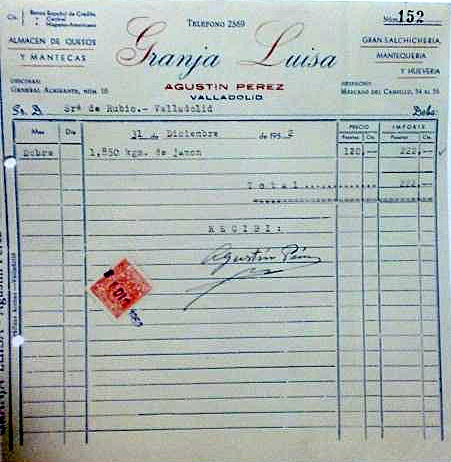 Banco Español de Credito
Central
Hispano-Americano
TELEFONO 2569
Núm. 152
ALMACEN DE QUESOS
Y MANTECAS
Granja Luisa
GRAN SALCHICHERIA,
MANTEQUERIA
Y HUEVERIA
OFICINAS:
GENERAL ALMIRANTE, NÚM 10
AGUSTIN PEREZ
VALLADOLID
DESPACHO:
MERCADO DEL CAMPILLO, 54 al 56
Sr. D. Srª de Rubio.- Valladolid
Debe:
Mes Dia 31 de Diciembre de 195
PRECIO IMPORTE
Pesetas Cts. Pesetas Cts.
Debra 1,850 kgm. de jamon 120,— 222,—
Total............ 222,—
RECIBI:
Agustín Pérez